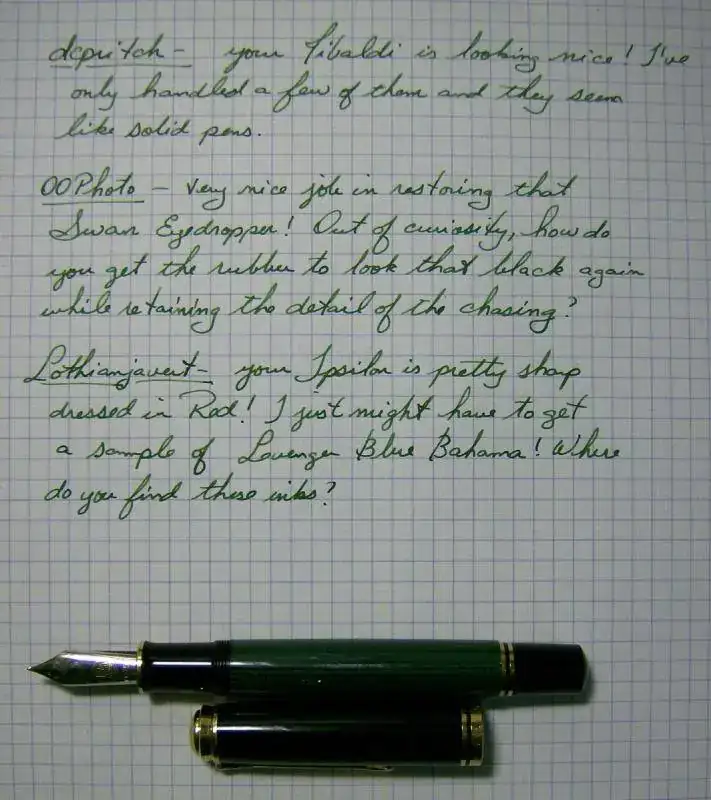 dcpritch - your Tibaldi is looking nice! I've
only handled a few of them and they seem
like solid pens.
OOPhoto - Very nice job in restoring that
Swan Eyedropper! Out of curiosity, how do
you get the rubber to look that black again
while retaining the detail of the chasing?
Lothianjavert - your Ipsilon is pretty sharp
dressed in Red! I just might have to get
a sample of Levenger Blue Bahama! Where
do you find these inks?